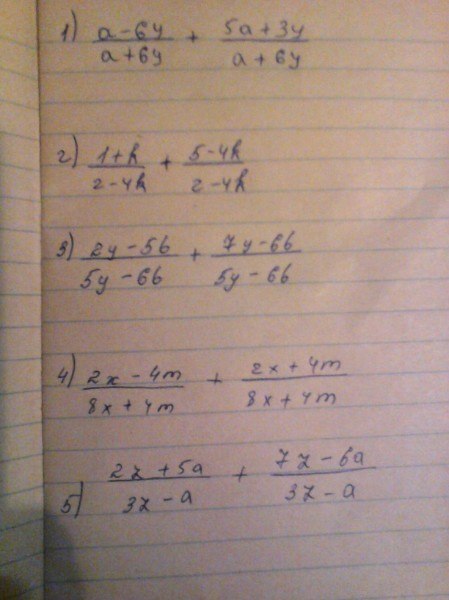 1) a-6y/a+6y + 5a+3y/a+6y
2) 1+k/2-4k + 5-4k/2-4k
3) 2y-5b/5y-6b + 7y-6b/5y-6b
4) 2x-4m/8x+4m + 2x+4m/8x+4m
5) 2z+5a/3z-a + 7z-6a/3z-a